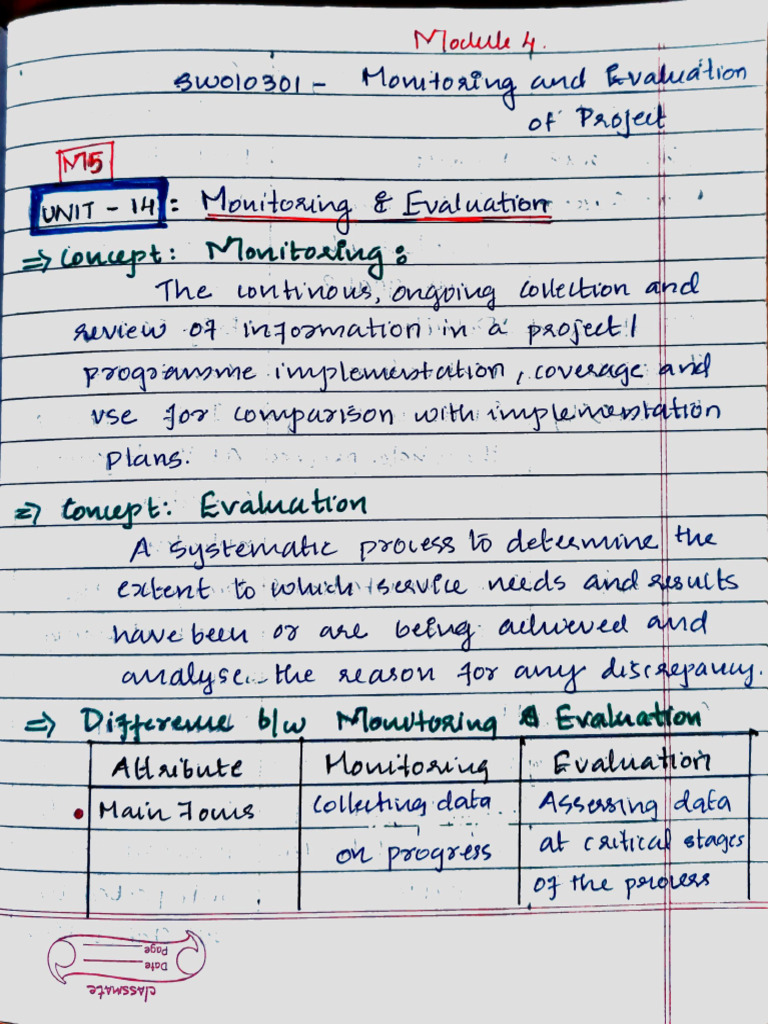 Module 4.
SW010301 - Monitoring and Evaluation
of Project
M5
UNIT - 14 : Monitoring & Evaluation
⇒ Concept: Monitoring:
The continous, ongoing collection and
review of information in a project/
programme implementation, coverage and
use for comparison with implementation
plans.
⇒ Concept: Evaluation
A systematic process to determine the
extent to which service needs and results
have been or are being achieved and
analyse the reason for any discrepancy.
⇒ Difference b/w Monitoring & Evaluation
Attribute Monitoring Evaluation
• Main Focus Collecting data Assessing data
on progress at critical stages
of the process
classmate
Date
Page